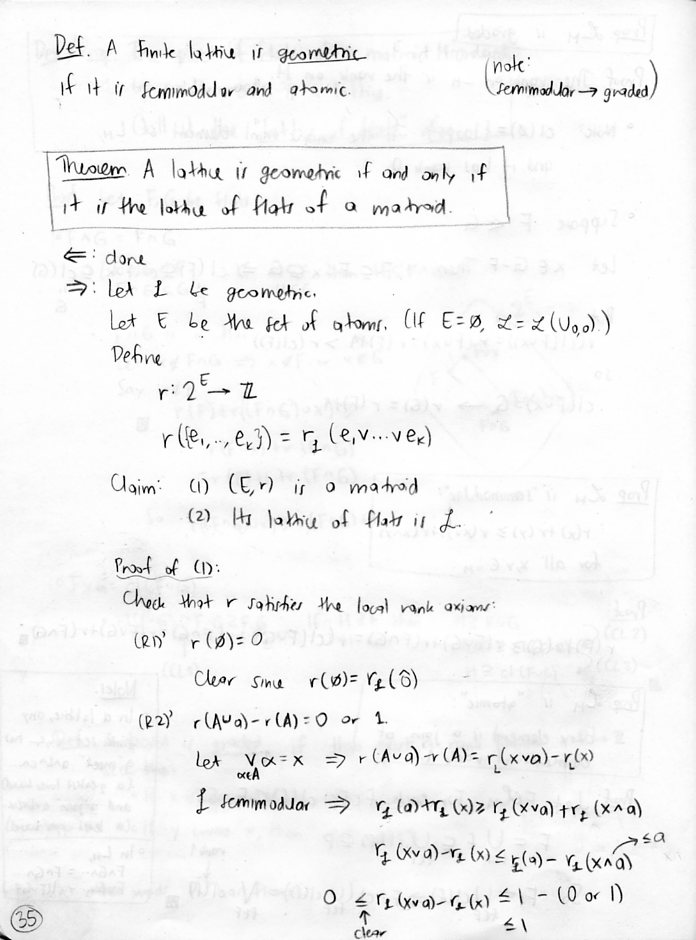 Def. A finite lattice is geometric
if it is semimodular and atomic.
(note:
semimodular → graded)
Theorem A lattice is geometric if and only if
it is the lattice of flats of a matroid.
⇐: done
⇒: Let L be geometric.
Let E be the set of atoms. (If E=∅, L = L(U₀,₀).)
Define
r: 2^E → ℤ
r({e₁,..,eₖ}) = r_L (e₁∨...∨eₖ)
Claim: (1) (E,r) is a matroid
(2) Its lattice of flats is L.
Proof of (1):
Check that r satisfies the local rank axioms:
(R1)' r(∅)=0
Clear since r(∅)= r_L(0̂)
(R2)' r(A∪a)-r(A)=0 or 1.
Let ⋁_{α∈A} α = x ⇒ r(A∪a)-r(A) = r_L(x∨a)-r_L(x)
L semimodular ⇒ r_L(a)+r_L(x) ≥ r_L(x∨a)+r_L(x∧a)
r_L(x∨a)-r_L(x) ≤ r_L(a) - r_L(x∧a) → ≤a
0 ≤ r_L(x∨a)-r_L(x) ≤ 1 - (0 or 1)
↑ clear ≤ 1
35